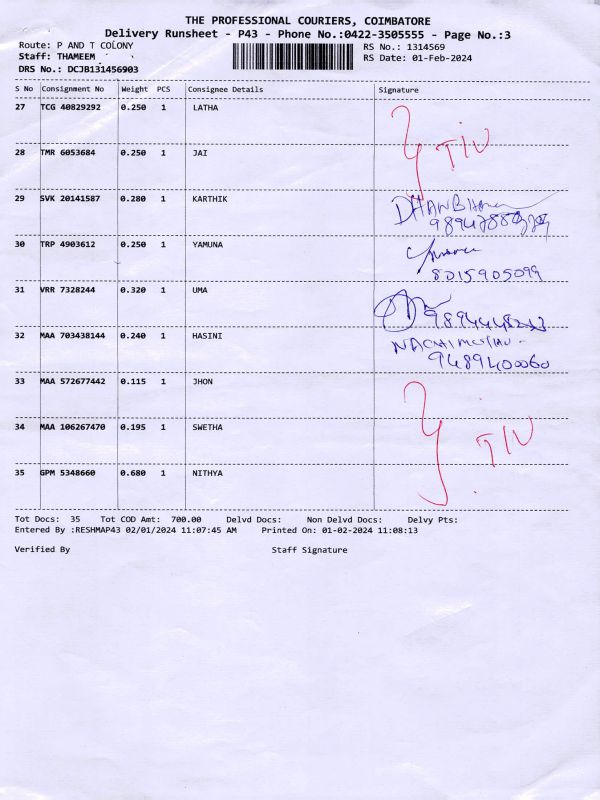 THE PROFESSIONAL COURIERS, COIMBATORE
Delivery Runsheet - P43 - Phone No.:0422-3505555 - Page No.:3
Route: P AND T COLONY
RS No.: 1314569
Staff: THAMEEM
RS Date: 01-Feb-2024
DRS No.: DCJB131456903
S No Consignment No Weight PCS Consignee Details Signature
27 TCG 40829292 0.250 1 LATHA
28 TMR 6053684 0.250 1 JAI
29 SVK 20141587 0.280 1 KARTHIK
30 TRP 4903612 0.250 1 YAMUNA
8015905099
31 VRR 7328244 0.320 1 UMA
32 MAA 703438144 0.240 1 HASINI
9489400060
33 MAA 572677442 0.115 1 JHON
34 MAA 106267470 0.195 1 SWETHA
35 GPM 5348660 0.680 1 NITHYA
Tot Docs: 35 Tot COD Amt: 700.00 Delvd Docs: Non Delvd Docs: Delvy Pts:
Entered By :RESHMAP43 02/01/2024 11:07:45 AM Printed On: 01-02-2024 11:08:13
Verified By Staff Signature